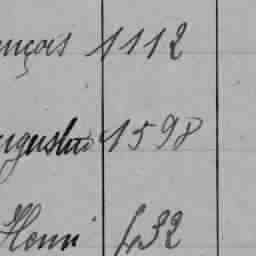 ançois 1112
ugustin 1598
Henri 432